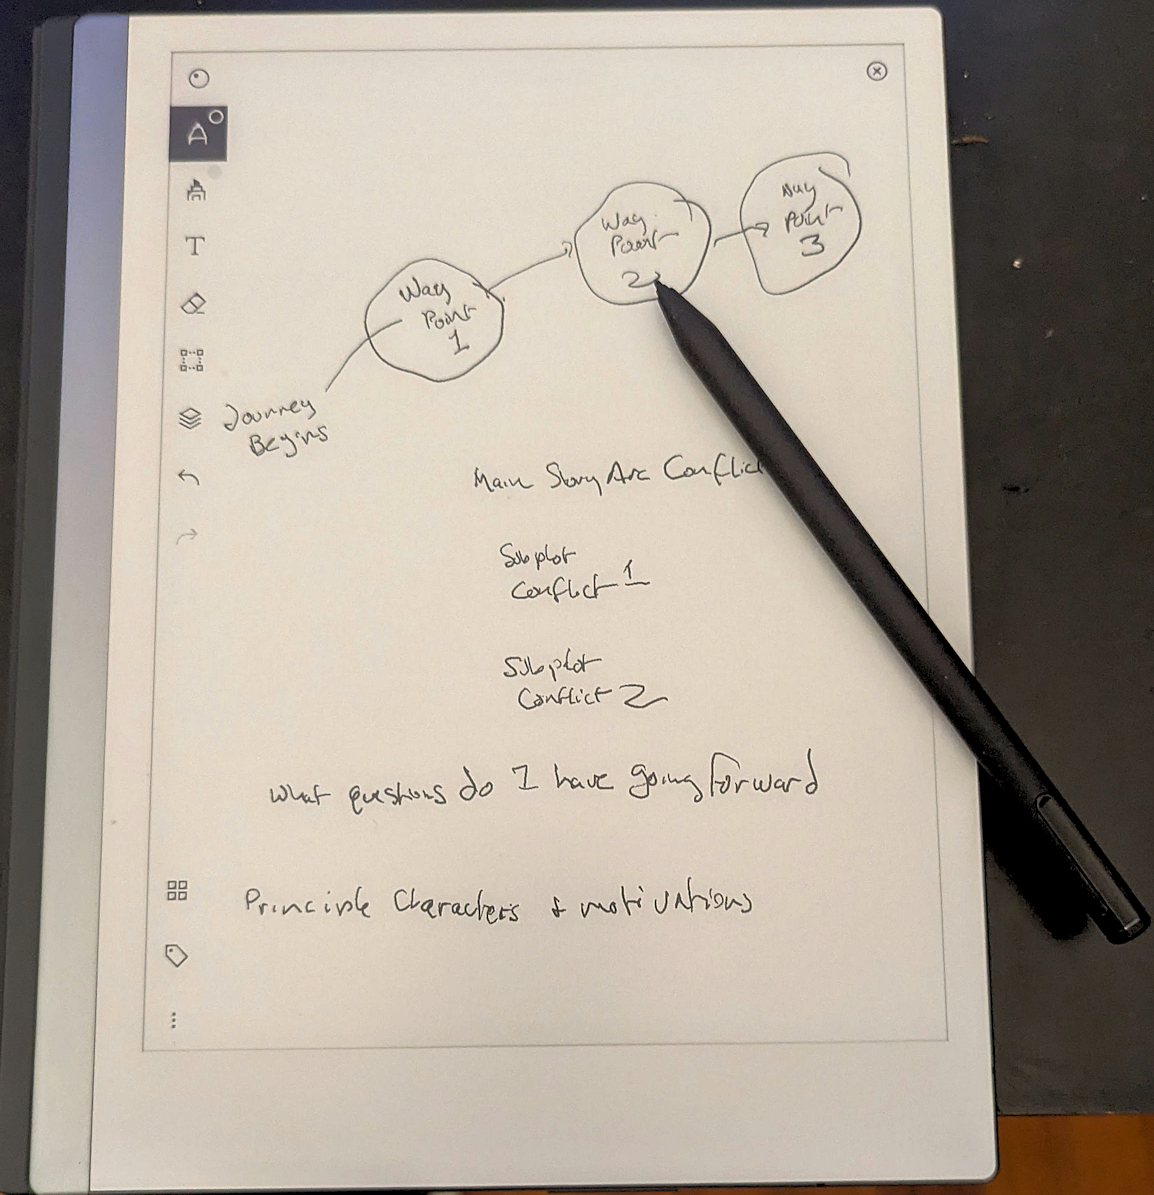 Way
Point
1
Way
Point
2
Way
Point
3
Journey
Begins
Main Story Arc Conflict
Subplot
Conflict 1
Subplot
Conflict 2
What questions do I have going forward
Principle Characters & motivations
T